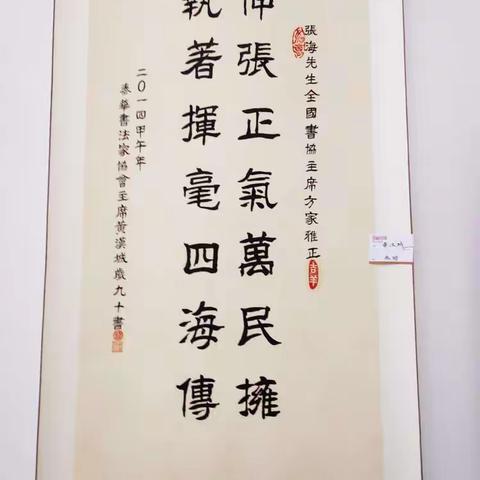 張海先生全國書協主席方家雅正
伸張正氣萬民擁
執著揮毫四海傳
二〇一四甲午年
泰華書法家協會主席黃漢城歲九十書
吉羊